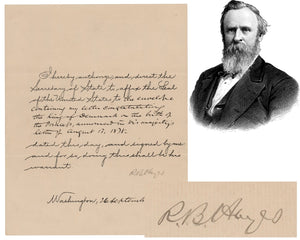 I hereby authorize and direct the
Secretary of State to affix the Seal
of the United States to the envelope
containing my letter congratulating
the King of Denmark on the birth of
the Princess, announced in his majesty's
letter of August 17, 1878.
dated this day, and signed by me
and for so doing this shall be his
warrant.
R.B. Hayes
Washington, 26
R.B. Hayes